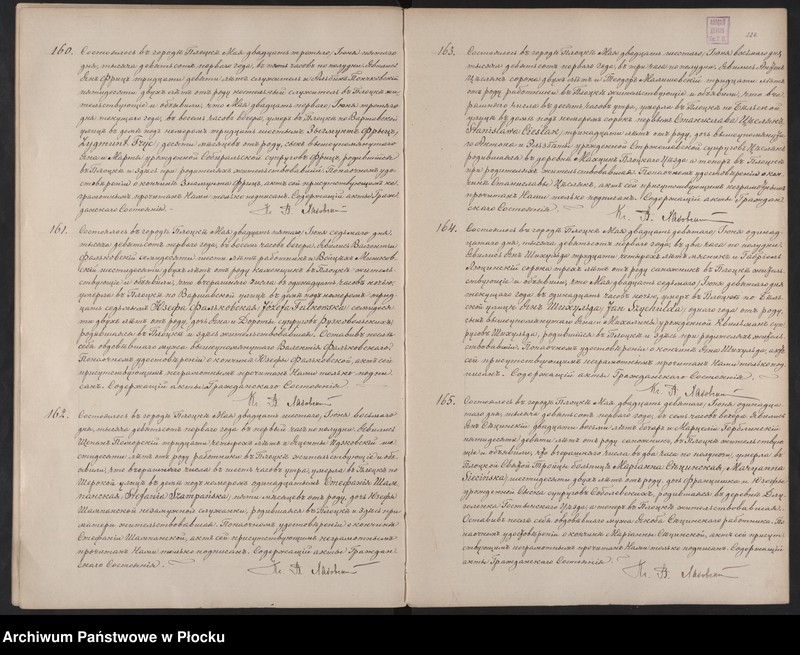 160. Состоялось въ городѣ Плоцкѣ Мая двадцать третьяго, Іюня пятаго
дня, тысяча девятьсотъ перваго года, въ часовъ по полудни. Явились
Янъ Фрицъ тридцати девяти лѣтъ служитель и
пятидесяти двухъ лѣтъ отъ роду служитель въ Плоцкѣ жи-
тельствующіе и объявили, что Мая двадцать перваго, Іюня третьяго
дня текущаго года, въ восемь часовъ вечера, умеръ въ Плоцкѣ по Варшавской
улицѣ въ домѣ подъ номеромъ тридцать шестымъ Зыгмунтъ Фрыцъ,
Zygmunt Fryc, десяти мѣсяцевъ отъ роду, сынъ вышеупомянутаго
Яна и Марты урожденной супруговъ Фрицъ, родившійся
въ Плоцкѣ и здѣсь при родителяхъ жительствовавшій. По настоящемъ удо-
стовѣреніи о кончинѣ Зыгмунта Фрица, актъ сей присутствующимъ не-
грамотнымъ прочитанъ Нами только подписанъ. Содержащій акты Граж-
данскаго Состоянія.
Кс. В. Lasocki
161. Состоялось въ городѣ Плоцкѣ Мая двадцать пятаго, Іюня седьмаго дня,
тысяча девятьсотъ перваго года, въ восемь часовъ вечера. Явились Валентій
Фальковскій семидесяти шести лѣтъ работникъ и Войцехъ
шестидесяти двухъ лѣтъ отъ роду каменщикъ въ Плоцкѣ житель-
ствующіе и объявили, что вчерашняго числа въ одинадцать часовъ ночью,
умерла въ Плоцкѣ по Варшавской улицѣ въ домѣ подъ номеромъ трид-
цать седьмымъ Юзефа Фальковская, Józefa Falkowska, семидеся-
ти двухъ лѣтъ отъ роду, дочь Яна и Дороты супруговъ
родившаяся въ Плоцкѣ и здѣсь жительствовавшая. Оставивъ послѣ
себя овдовѣвшаго мужа вышеупомянутаго Валентія Фальковскаго.
По настоящемъ удостовѣреніи о кончинѣ Юзефы Фальковской, актъ сей
присутствующимъ неграмотнымъ прочитанъ Нами только подпи-
санъ. Содержащій акты Гражданскаго Состоянія.
Кс. В. Lasocki
162. Состоялось въ городѣ Плоцкѣ Мая двадцать шестаго, Іюня восьмаго
дня, тысяча девятьсотъ перваго года въ первый часъ по полудни. Явились
Щепанъ тридцати четырехъ лѣтъ и
шестидесяти лѣтъ отъ роду работники въ Плоцкѣ жительствующіе и объ-
явили, что вчерашняго числа въ шесть часовъ утра, умерла въ Плоцкѣ по
Широкой улицѣ въ домѣ подъ номеромъ одинадцатымъ Стефанія Шат-
панская, Stefania Szatpańska, пяти мѣсяцевъ отъ роду, дочь Юзефы
Шатпанской незамужней служанки, родившаяся въ Плоцкѣ и здѣсь при
матери жительствовавшая. По настоящемъ удостовѣреніи о кончинѣ
Стефаніи Шатпанской, актъ сей присутствующимъ неграмотнымъ
прочитанъ Нами только подписанъ. Содержащій акты Граждан-
скаго Состоянія.
Кс. В. Lasocki
163. Состоялось въ городѣ Плоцкѣ Мая двадцать шестаго, Іюня восьмаго дня,
тысяча девятьсотъ перваго года, въ три часа по полудни. Явились
Цесьлякъ сорока двухъ лѣтъ и Теодоръ тридцати лѣтъ
отъ роду работники въ Плоцкѣ жительствующіе и объявили, что вче-
рашняго числа въ десять часовъ утра, умерла въ Плоцкѣ по
улицѣ въ домѣ подъ номеромъ сорокъ первымъ Станислава Цеслякъ,
Stanisława Cieślak, тринадцати лѣтъ отъ роду, дочь вышеупомянута-
го Антона и урожденной супруговъ Цеслякъ
родившаяся въ деревнѣ Плоцкаго Уѣзда а теперь въ Плоцкѣ
при родителяхъ жительствовавшая. По настоящемъ удостовѣреніи о кон-
чинѣ Станиславы Цеслякъ, актъ сей присутствующимъ неграмотнымъ
прочитанъ Нами только подписанъ. Содержащій акты Граждан-
скаго Состоянія.
Кс. В. Lasocki
164. Состоялось въ городѣ Плоцкѣ Мая двадцать девятаго, Іюня одинад-
цатаго дня, тысяча девятьсотъ перваго года, въ два часа по полудни.
Явились Янъ Шихульда тридцати четырехъ лѣтъ и Габріель
сорока трехъ лѣтъ отъ роду сапожникъ въ Плоцкѣ житель-
ствующіе и объявили, что Мая двадцать седьмаго, Іюня девятаго дня
текущаго года въ одинадцать часовъ ночью, умеръ въ Плоцкѣ по
ской улицѣ Янъ Шихульда, Jan Szychulda, одного года отъ роду,
сынъ вышеупомянутаго Яна и Михалины урожденной суп-
руговъ Шихульда, родившійся въ Плоцкѣ и здѣсь при родителяхъ житель-
ствовавшій. По настоящемъ удостовѣреніи о кончинѣ Яна Шихульда, актъ
сей присутствующимъ неграмотнымъ прочитанъ Нами только под-
писанъ. Содержащій акты Гражданскаго Состоянія.
Кс. В. Lasocki
165. Состоялось въ городѣ Плоцкѣ Мая двадцать девятаго, Іюня одинадца-
таго дня, тысяча девятьсотъ перваго года, въ семь часовъ вечера. Явились
Янъ Сѣцинскій двадцати восьми лѣтъ и Марцелій
пятидесяти девяти лѣтъ отъ роду сапожникъ, въ Плоцкѣ жительствую-
щіе и объявили, что вчерашняго числа въ два часа по полуночи, умерла въ
Плоцкой Святой Троицы больницѣ Маріанна Сѣцинская, Maryanna
Siecińska, шестидесяти двухъ лѣтъ отъ роду, дочь Франциска и Юзефы
урожденной супруговъ Соболевскихъ, родившаяся въ деревнѣ
Уѣзда, а теперь въ Плоцкѣ жительствовавшая.
Оставивъ послѣ себя овдовѣвшаго мужа Якова Сѣцинскаго работника. По
настоящемъ удостовѣреніи о кончинѣ Маріанны Сѣцинской, актъ сей присут-
ствующимъ неграмотнымъ прочитанъ Нами только подписанъ. Содержащій
акты Гражданскаго Состоянія.
Кс. В. Lasocki
Archiwum Państwowe w Płocku